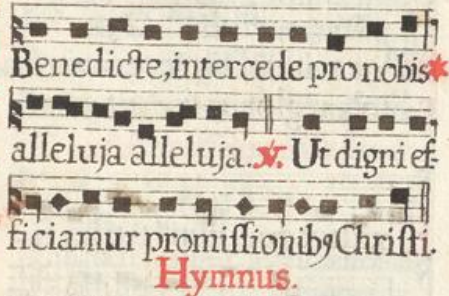 Benedicte, intercede pro nobis*
alleluja alleluja. ℣. Ut digni ef-
ficiamur promiſſionibꝯ Chriſti.
Hymnus.